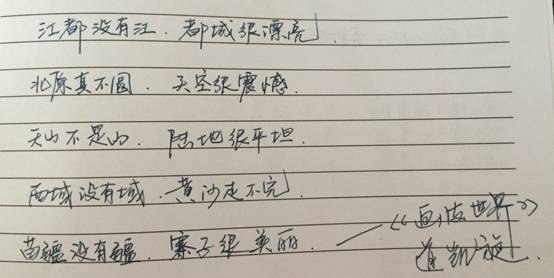 江都没有江．都城很漂亮
北原真不圆．天空很震憾．
天山不是山．陆地很平坦．
西域没有域．黄沙走不完
苗疆没有疆．寨子很美丽．
——《画皮世界》
凯旋．